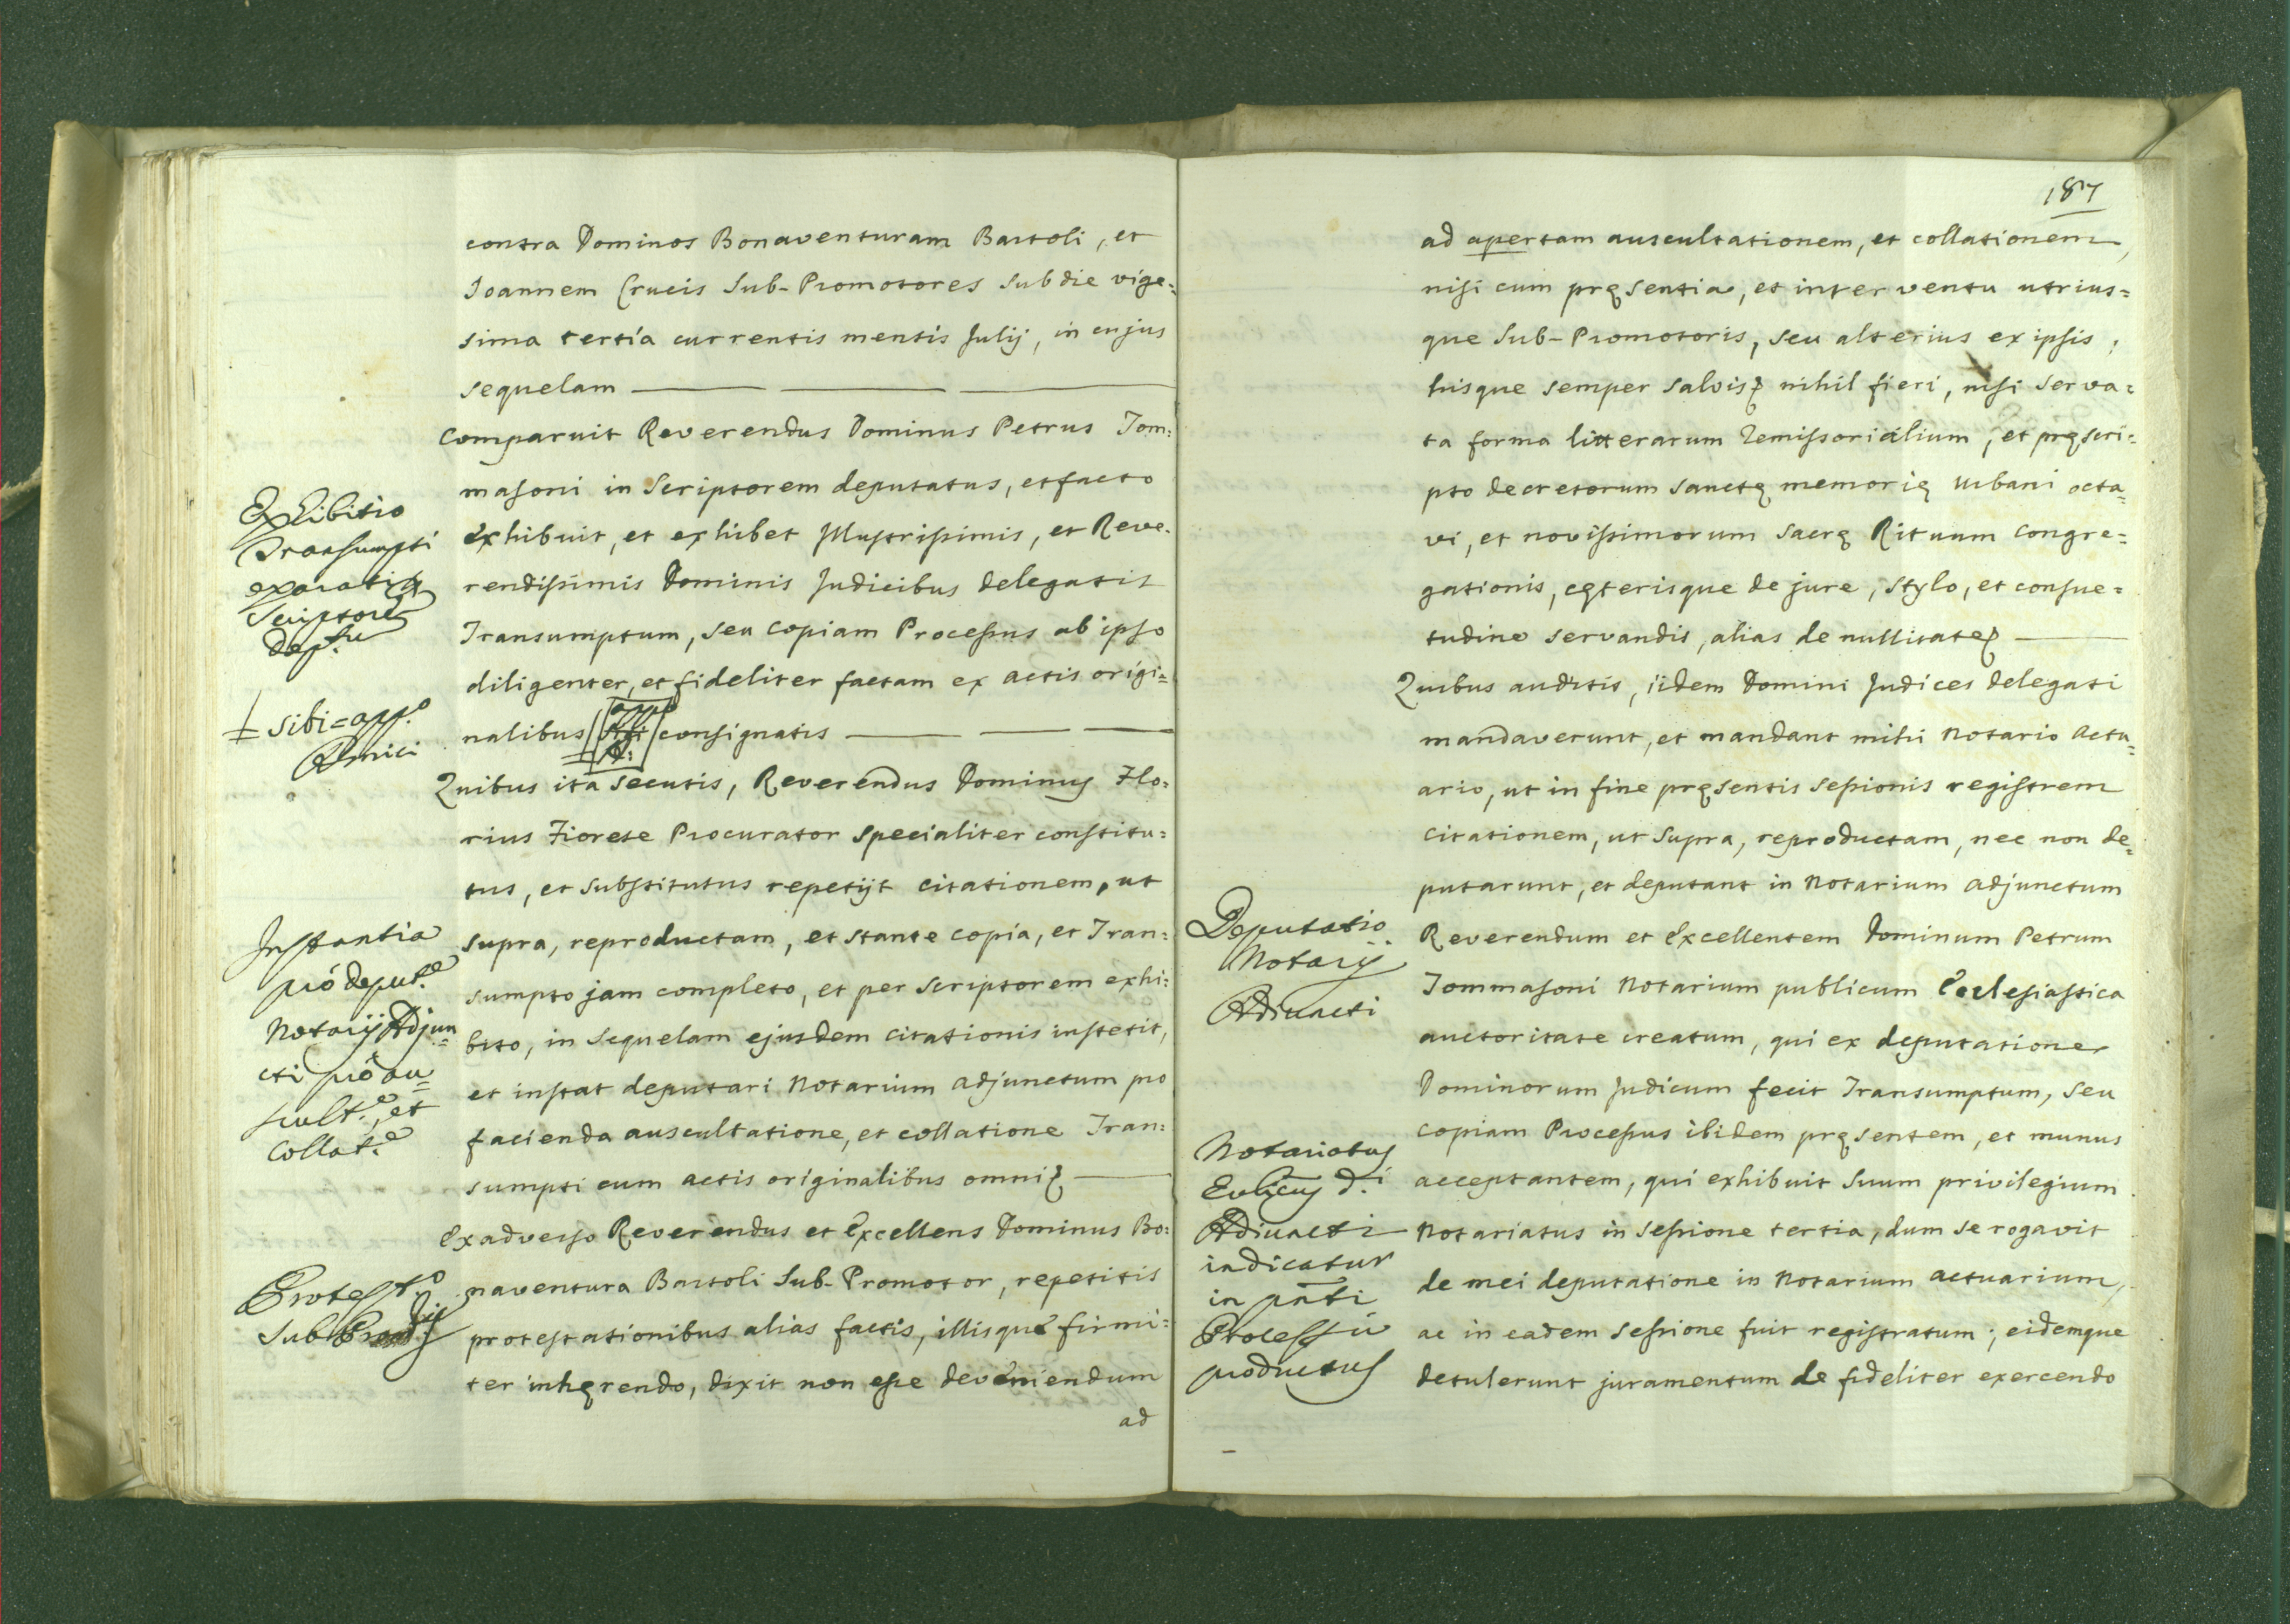 contra Dominos Bonaventuram Bartoli, et
Joannem Crucis Sub-Promotores sub die vige=
sima tertia currentis mentis Julij, in cujus
sequelam
Comparuit Reverendus Dominus Petrus Tom=
masoni in Scriptorem deputatus, et facto
exhibuit, et exhibet Illustrissimis, et Reve=
rendissimis Dominis Judicibus delegatis
Transumptum, seu copiam Processus ab ipso
diligenter, et fideliter factam ex actis origi=
nalibus consignatis
Quibus ita secutis, Reverendus Dominus Flo=
rius Fiorese Procurator specialiter constitu=
tus, et substitutus repetijt citationem, ut
supra, reproductam, et stante copia, et Tran=
sumpto jam completo, et per scriptorem exhi=
bito, in sequelam ejusdem citationis institit,
et instat deputari Notarium adjunctum pro
facienda auscultatione, et collatione Tran=
sumpti cum actis originalibus omni
Ex adverso Reverendus et Excellens Dominus Bo=
naventura Bartoli Sub-Promotor, repetitis
protestationibus alias factis, illisque firmi=
ter inhęrendo, dixit non esse deveniendum
ad
Exhibitio
Transumpti
exarati
Scriptore
dep.tu
sibi=app.o
Amici
Instantia
pró deput.e
Notarij Adjun=
cti pró au=
scult.e, et
Collat.e
Protest.o
Sub
187
ad apertam auscultationem, et collationem,
nisi cum pręsentia, et interventu utrius=
que Sub-Promotoris, seu alterius ex ipsis,
hisque semper salvis nihil fieri, nisi serva=
ta forma litterarum Remissorialium, et pręscri=
pto decretorum sanctę memorię Urbani octa=
vi, et novissimorum Sacrę Rituum Congre=
gationis, cęterisque de jure, stylo, et consue=
tudine servandis, alias de nullitate
Quibus auditis, iidem Domini Judices delegati
mandaverunt, et mandant mihi Notario Actu=
ario, ut in fine pręsentis sessionis registrem
citationem, ut supra, reproductam, nec non de=
putarunt, et deputant in Notarium adjunctum
Reverendum et Excellentem Dominum Petrum
Tommasoni Notarium publicum Ecclesiastica
auctoritate creatum, qui ex deputatione
Dominorum Judicum fecit Transumptum, seu
copiam Processus ibidem pręsentem, et munus
acceptantem, qui exhibuit suum privilegium
Notariatus in sessione tertia, dum se rogavit
de mei deputatione in Notarium actuarium,
ac in eadem sessione fuit registratum; eidemque
detulerunt juramentum de fideliter exercendo
Deputatio
Notarij
Adiuncti
Notariatus
d.i
Adiuncti
indicatur
in pnti
Processu
productus